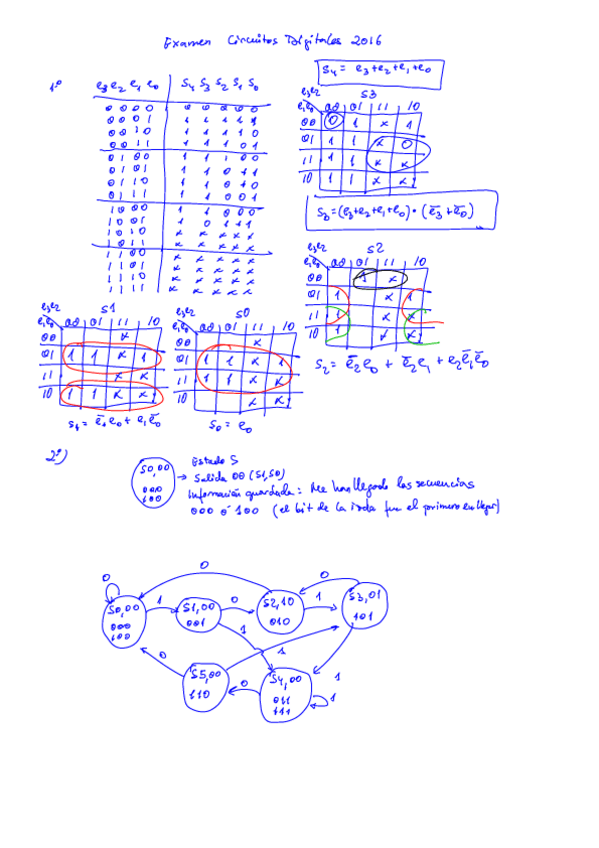 Examen Circuitos Digitales 2016
1º
e3 e2 e1 e0 | S4 S3 S2 S1 S0
0 0 0 0 | 0 0 0 0 0
0 0 0 1 | 1 1 1 1 1
0 0 1 0 | 1 1 1 1 0
0 0 1 1 | 1 1 1 0 1
0 1 0 0 | 1 1 1 0 0
0 1 0 1 | 1 1 0 1 1
0 1 1 0 | 1 1 0 1 0
0 1 1 1 | 1 1 0 0 1
1 0 0 0 | 1 1 0 0 0
1 0 0 1 | 1 0 1 1 1
1 0 1 0 | x x x x x
1 0 1 1 | x x x x x
1 1 0 0 | x x x x x
1 1 0 1 | x x x x x
1 1 1 0 | x x x x x
1 1 1 1 | x x x x x
S4 = e3+e2+e1+e0
S3
e3e2
e1e0 00 01 11 10
00 0 1 x 1
01 1 1 x 0
11 1 1 x x
10 1 1 x x
=(e3+e2+e1+e0)·(e̅3+e̅0)
S2
e3e2
e1e0 00 01 11 10
00 1 x
01 1 x 1
11 1 x x
10 1 x x
S2= e̅2e0 + e̅2e1 + e2e̅1e̅0
S1
e3e2
e1e0 00 01 11 10
00 x
01 1 1 x 1
11 x x
10 1 1 x x
= e̅1e0 + e1e̅0
S0
e3e2
e1e0 00 01 11 10
00 x
01 1 1 x 1
11 1 1 x x
10 x x
S0 = e0
2º)
S0,00
000
100
Estado S
→ Salida 00 (S1,S0)
Información guardada: Me han llegado las secuencias
000 ó 100 (el bit de la izda fue el primero en llegar)
0
0
0
S0,00
000
100
1
S1,00
001
0
S2,10
010
1
S3,01
101
1
1
0
S5,00
110
0
S4,00
011
111
1
1